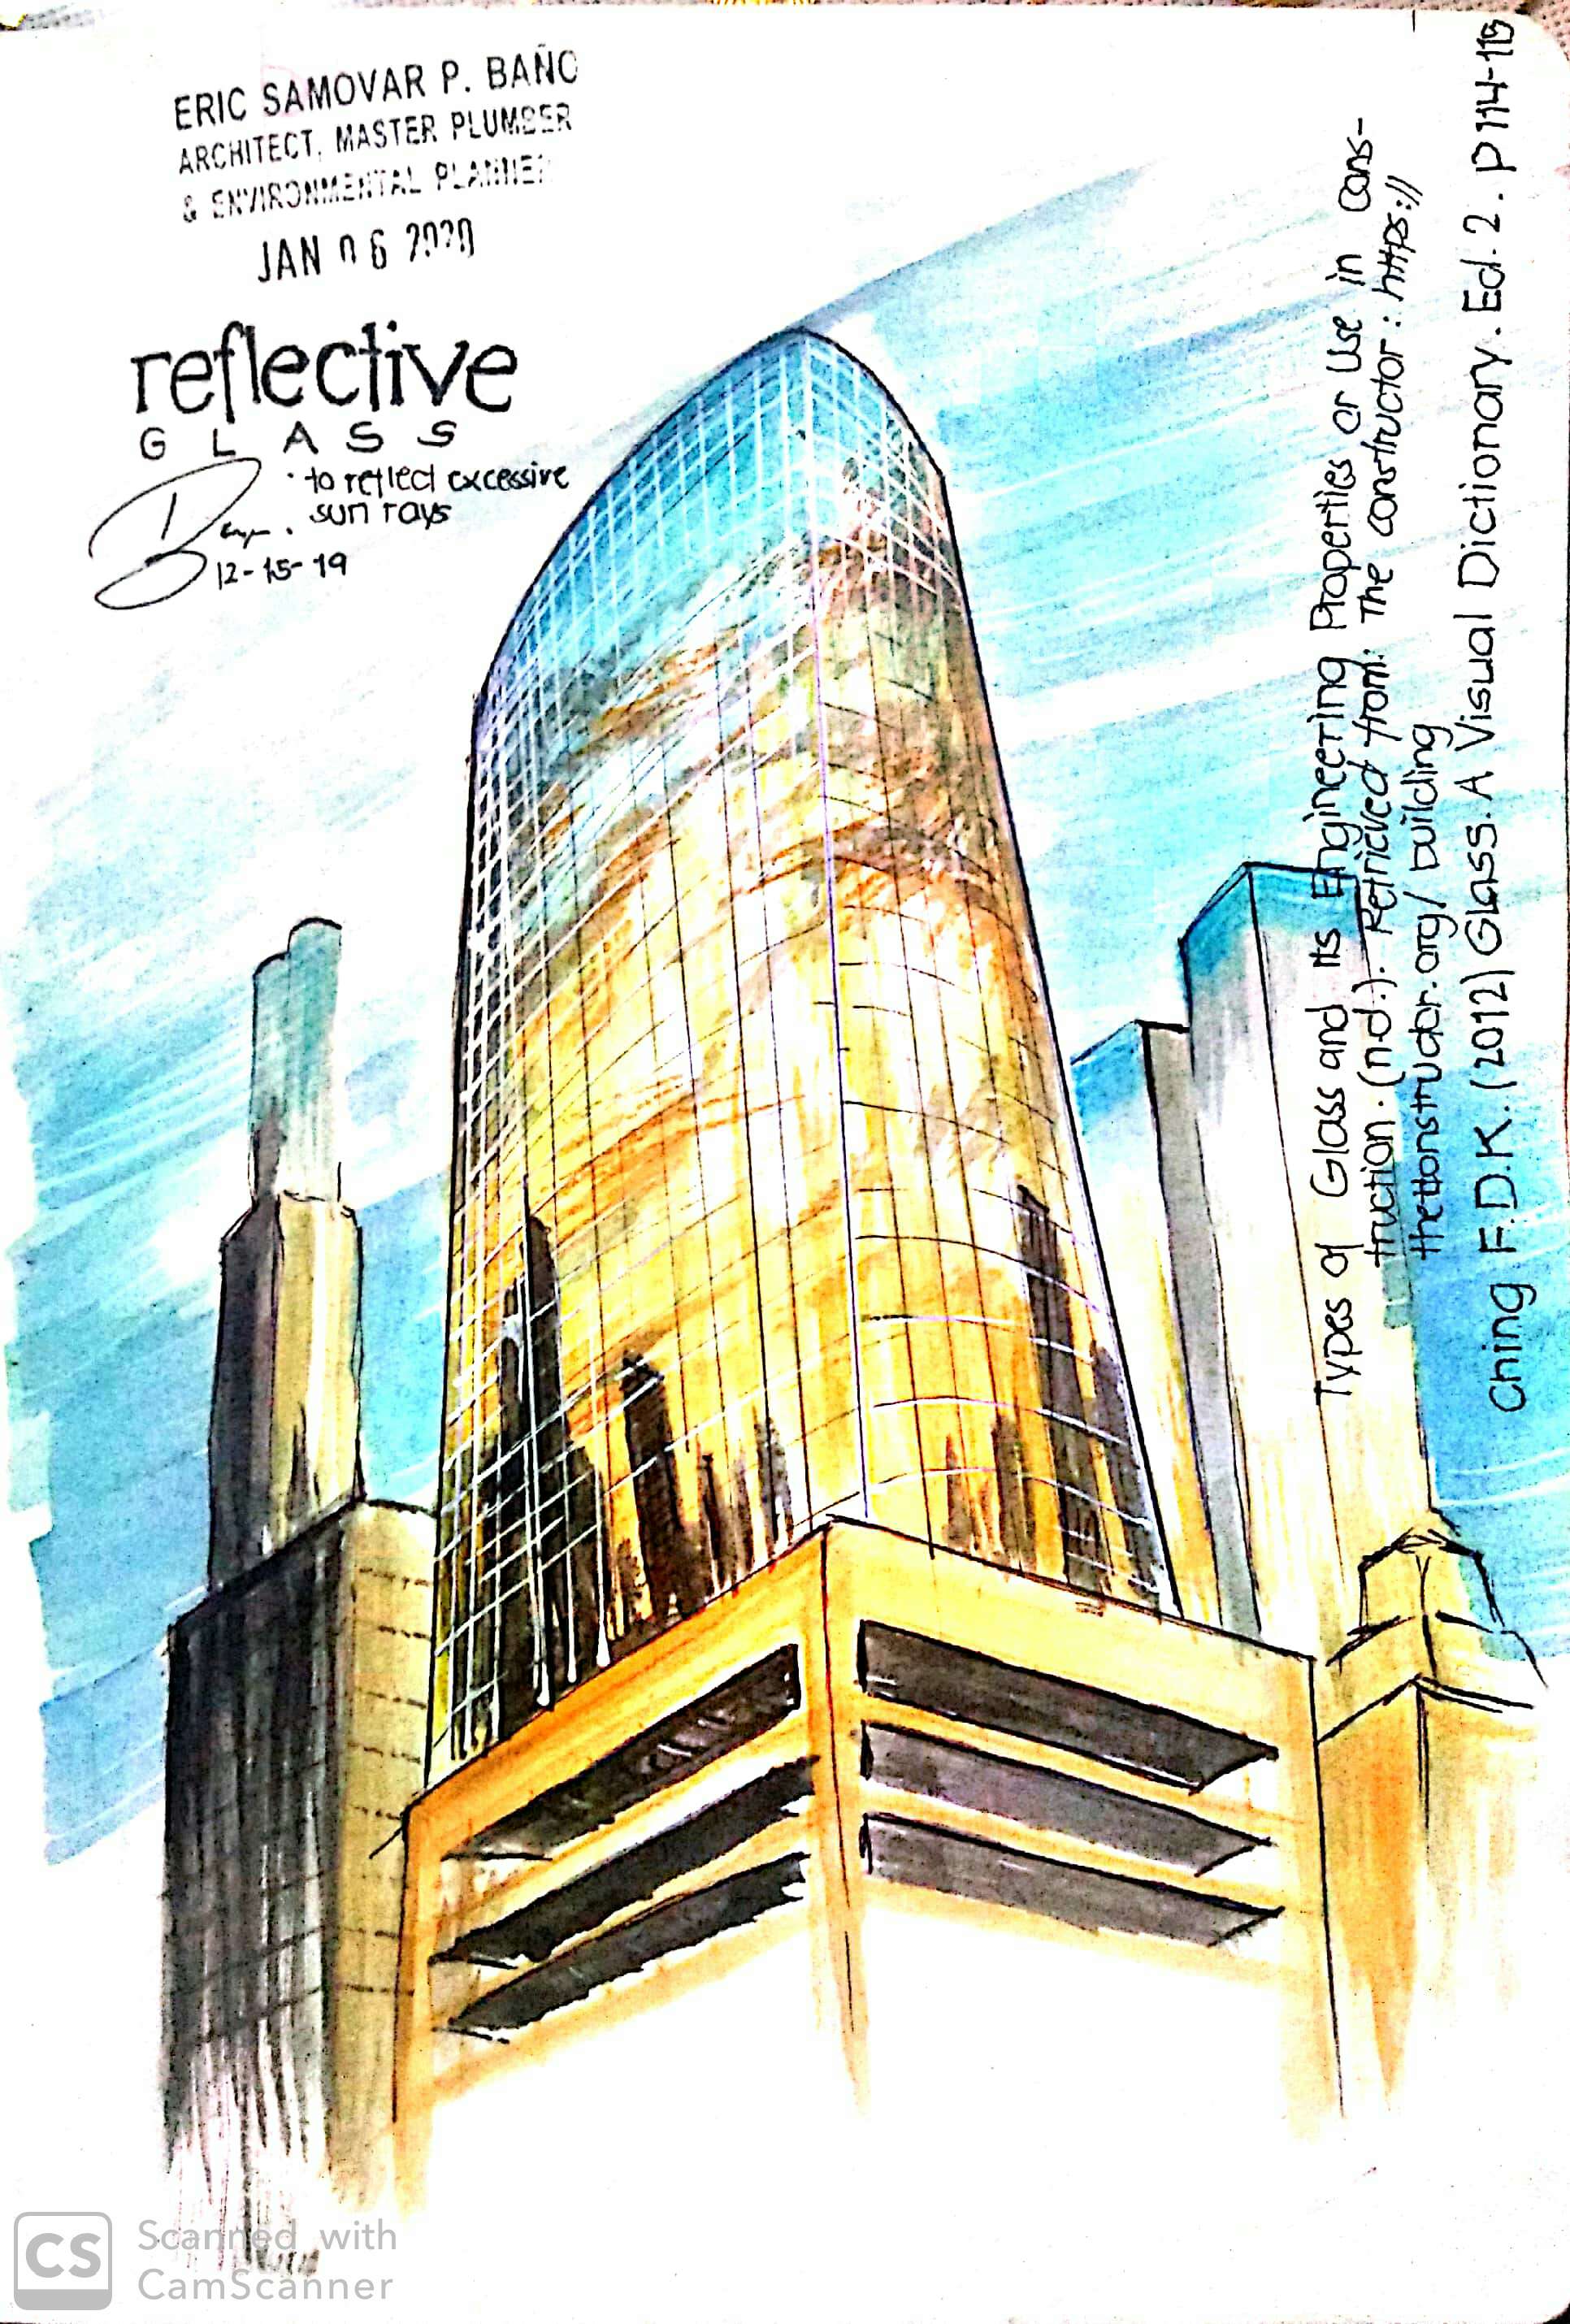 ERIC SAMOVAR P. BAÑO
ARCHITECT, MASTER PLUMBER
& ENVIRONMENTAL PLANNER
JAN 06 2020
reflective
GLASS
· to reflect excessive
sun rays
12-15-19
Types of Glass and Its Engineering Properties or Use in Cons-
truction. (n.d.). Retrieved from: The constructor: https://
theconstructor.org/building
Ching F.D.K. (2012) Glass. A Visual Dictionary. Ed. 2. p 114-115
CS
Scanned with
CamScanner